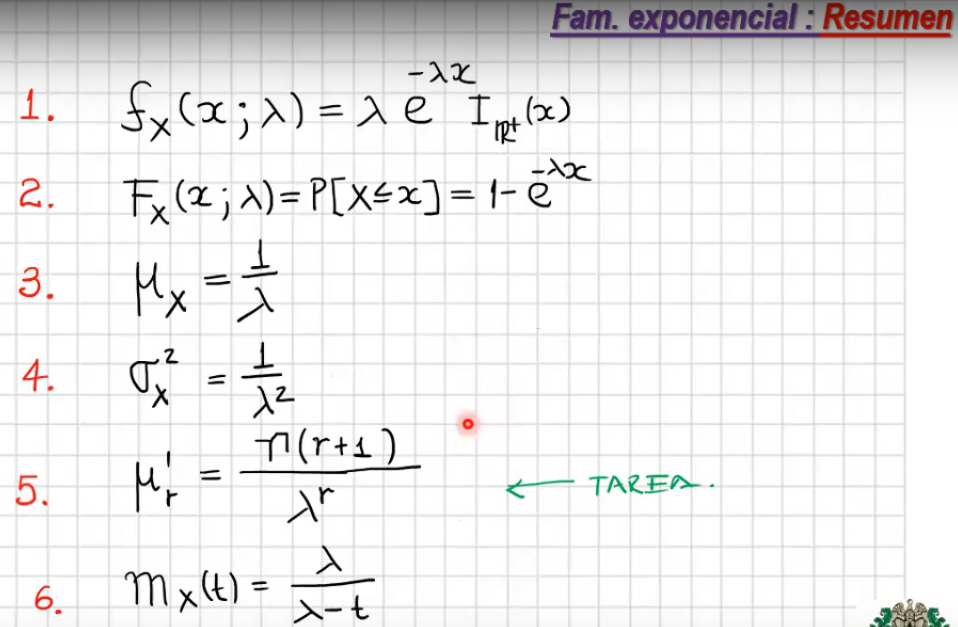 Fam. exponencial : Resumen
1. f_X(x;λ) = λ e^{-λx} I_{ℝ⁺}(x)
2. F_X(x;λ) = P[X≤x] = 1 - e^{-λx}
3. μ_X = 1/λ
4. σ_X^2 = 1/λ^2
5. μ'_r = Γ(r+1)/λ^r ← TAREA.
6. m_X(t) = λ/(λ-t)